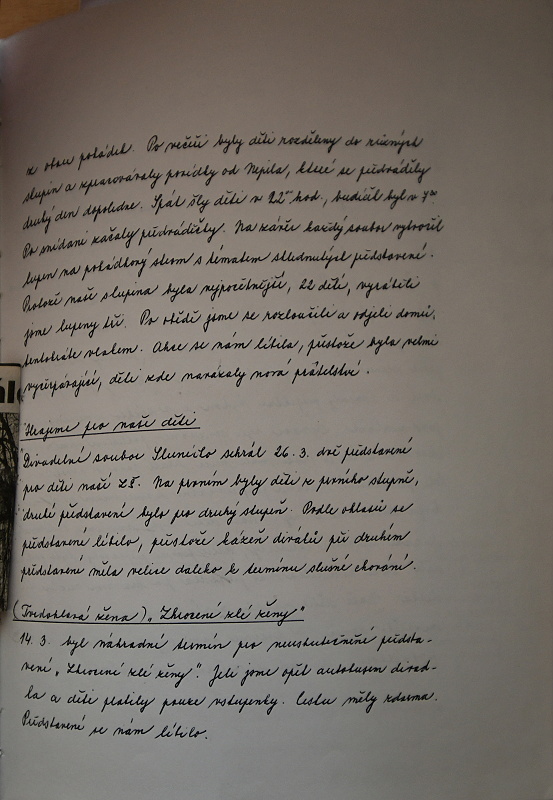 z obou pohádek. Po večeři byly děti rozděleny do různých
skupin a zpracovávaly povídky od Nepila, které se předváděly
druhý den dopoledne. Spát šly děti v 22°° hod., budíček byl v 7°°.
Po snídani začaly předváděčky. Na závěr každý soubor vytvořil
lupen na pohádkový strom s tématem shlédnutých představení.
Protože naše skupina byla nejpočetnější, 22 dětí, vyrobili
jsme lupeny tři. Po obědě jsme se rozloučili a odjeli domů,
tentokráte vlakem. Akce se nám líbila, přestože byla velmi
vyčerpávající, děti zde navázaly nová přátelství.
Hrajeme pro naše děti
Divadelní soubor Slunéčko sehrál 26. 3. dvě představení
pro děti naší ZŠ. Na prvním byly děti z prvního stupně,
druhé představení bylo pro druhý stupeň. Podle ohlasů se
představení líbilo, přestože kázeň diváků při druhém
představení měla velice daleko k termínu slušné chování.
(Tvrdohlavá žena) „Zkrocení zlé ženy"
14. 3. byl náhradní termín pro neuskutečněné předsta-
vení „Zkrocení zlé ženy". Jeli jsme opět autobusem divad-
la a děti platily pouze vstupenky. Cestu měly zdarma.
Představení se nám líbilo.